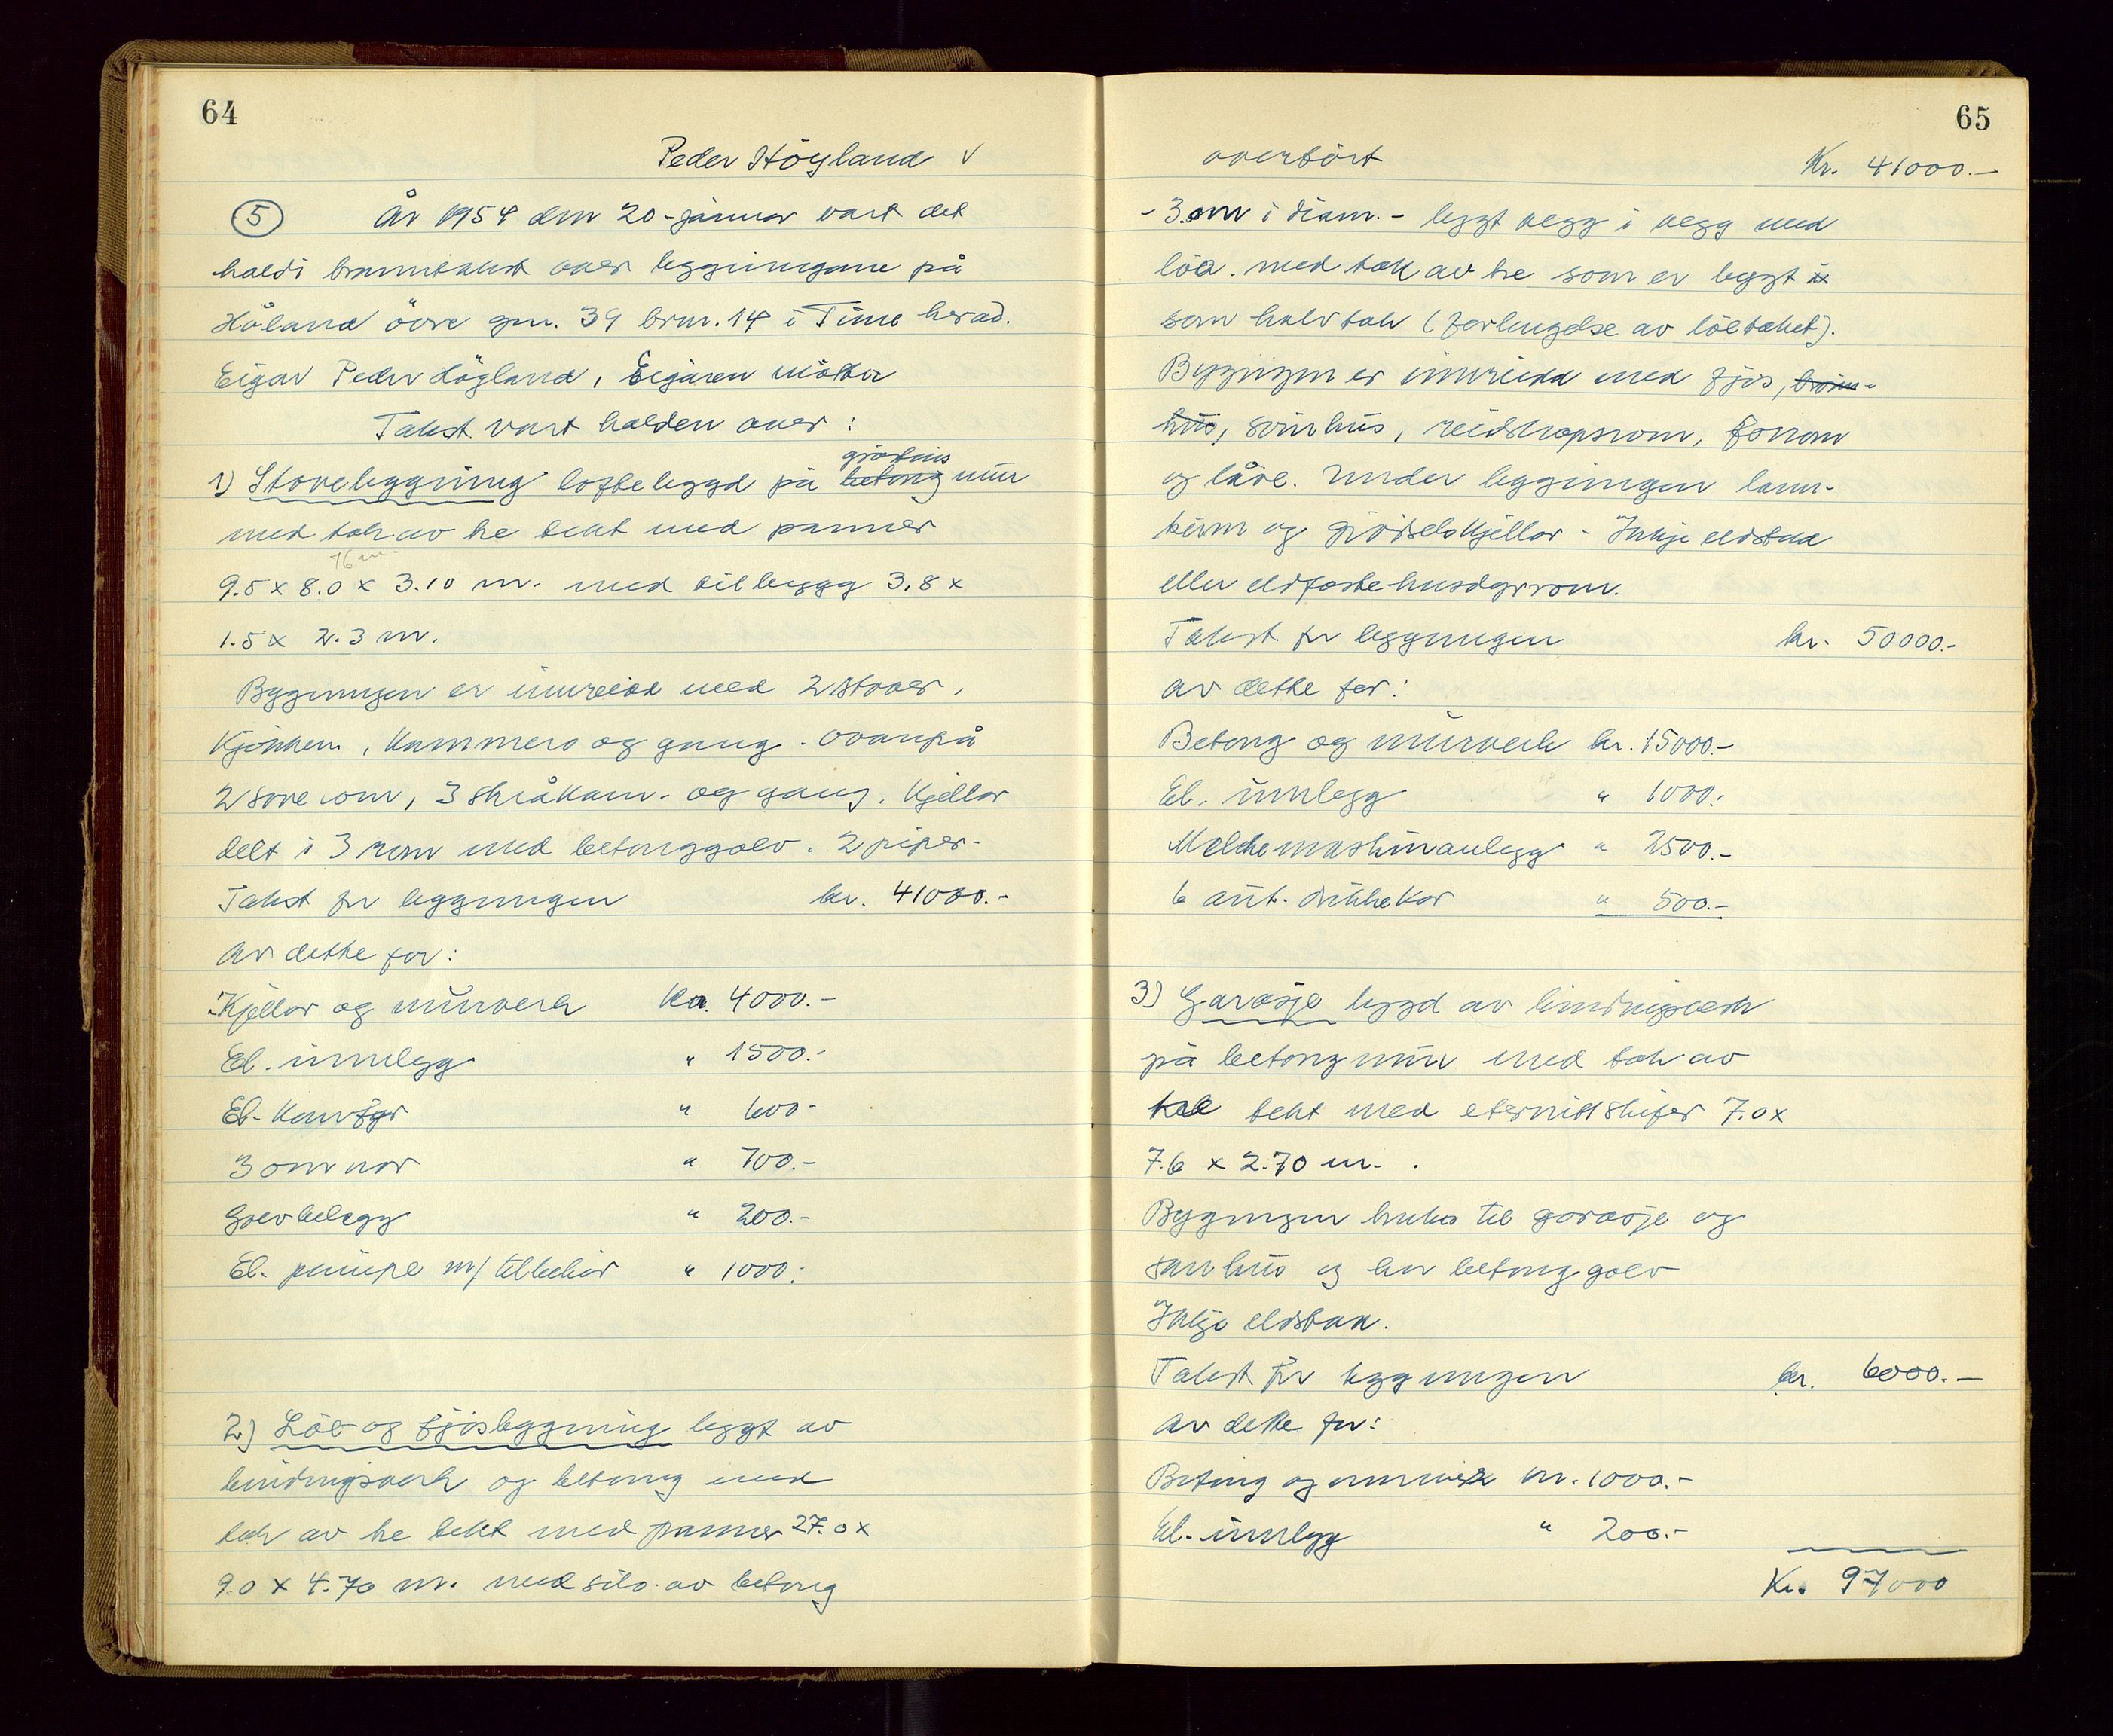 64
Peder Höyland v
5 År 1954 den 20-januar vart det
haldi branntakst over byggingane på
Håland övre gnr. 39 brnr. 14 i Time herad.
Eigar Peder Högland, Eigaren mötte
Takst vart halden over:
gråsteins
1) Stovebygging loftbyggd på betong mur
med tak av tre tekt med panner
76 m
9.5 x 8.0 x 3.10 m. med tilbygg 3.8 x
1.5 x 2.3 m.
Bygningen er innreidd med 2 stover,
kjökken, kammers og gang. Ovanpå
2 soverom, 3 skråkam. og gang. Kjellar
delt i 3 rom med betonggolv. 2 piper.
Takst for byggingen kr. 41000.-
Av dette for:
Kjellar og murverk Kr. 4000.-
El. innlegg " 1500.-
El. komfyr " 600-
3 omnar " 700.-
Golvbelegg " 200.-
El. pumpe m/ tilbehör " 1000.-
2) Löe og fjösbygning bygt av
bindingsverk og betong med
tak av tre tekt med panner 27.0 x
9.0 x 4.70 m. med silo av betong
65
overfört Kr. 41000.-
- 3.0m i diam. - bygt vegg i vegg med
löa. med tak av tre som er bygt i
som halvtak (forlengelse av löetaket).
Bygningen er innreidd med fjös, brönn-
hus, svinhus, reidskapsrom, forrom
og låve. Under byggingen land-
kum og gjödselskjellar - Inkje eldstad
eller eldfaste husdyrrom.
Takst for byggingen kr. 50000.-
Av dette for:
Betong og murverk kr. 15000.-
El. innlegg " 1000.-
Melkemaskinanlegg " 2500.-
6 aut. drikkekar " 500.-
3) Garasje bygd av bindingsverk
på betong mur med tak av
tre tekt med eternittskifer 7.0 x
7.6 x 2.70 m.
Bygningen brukes til garasje og
hus og har betonggolv
Inkje eldstad.
Takst for byggingen kr. 6000.-
Av dette for:
Betong og murverk kr. 1000.-
El. innlegg " 200.-
Kr. 97000